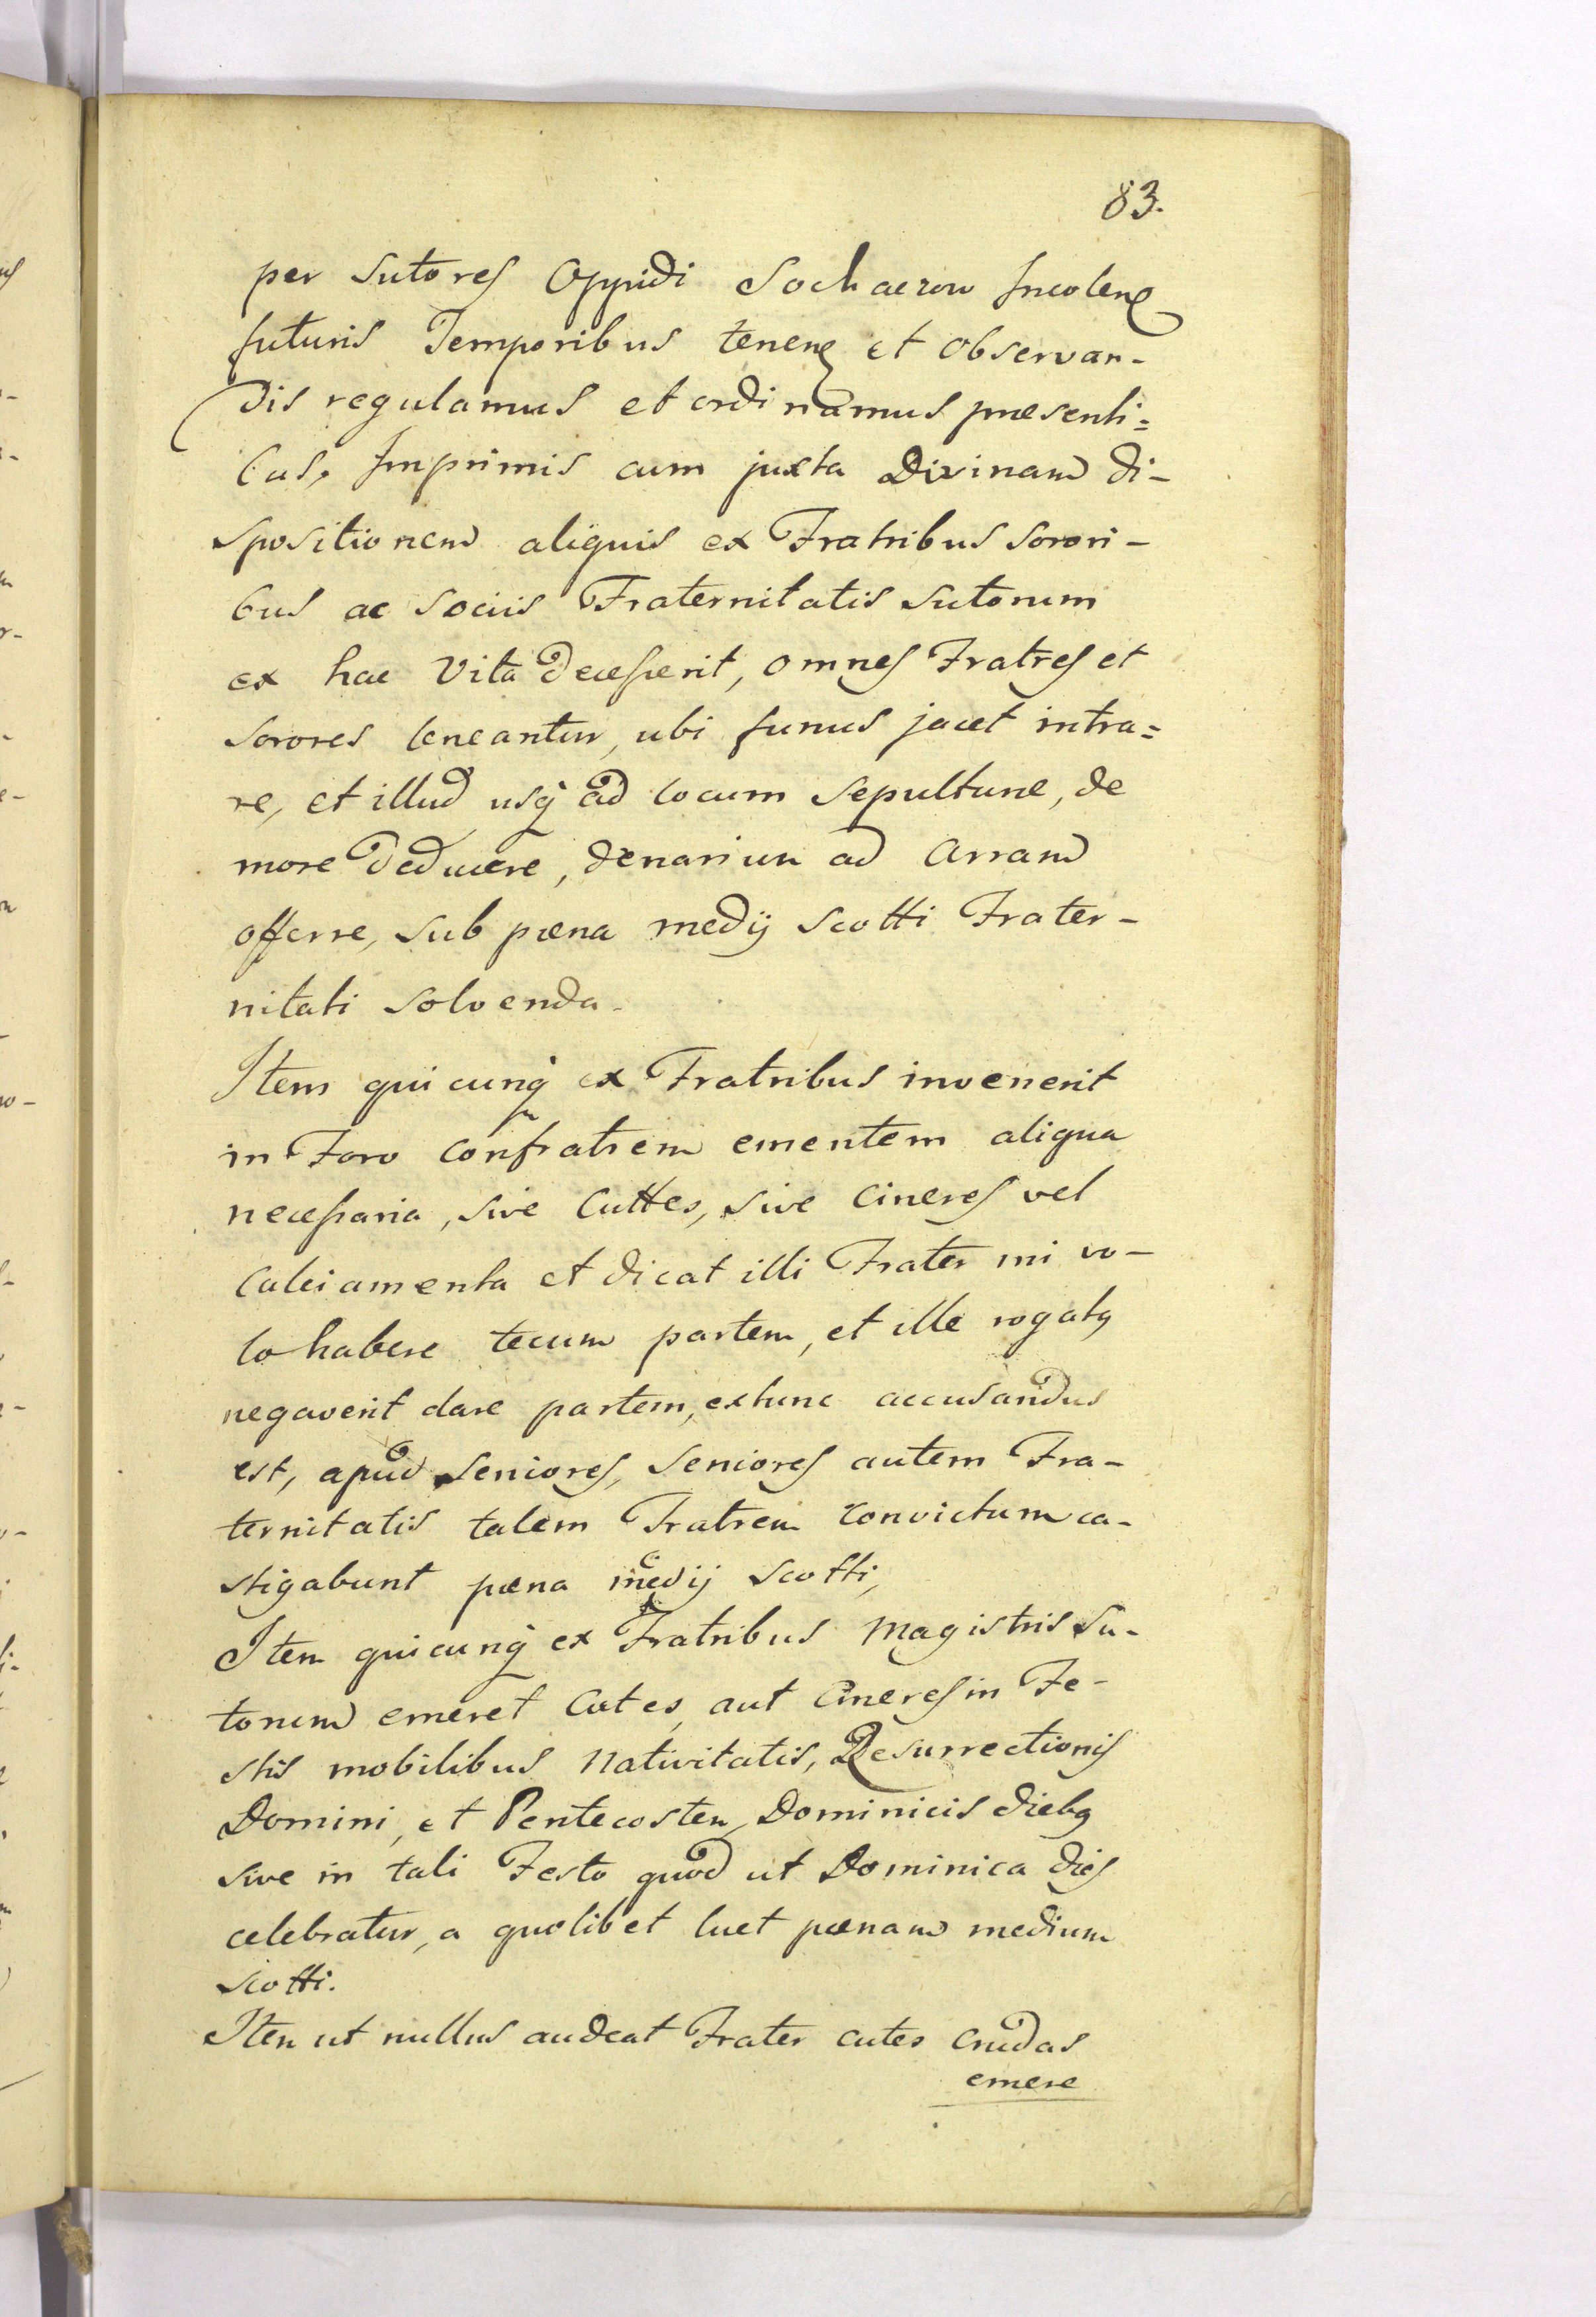 83.
per Sutores Oppidi Sochaczow Incolen
futuris Temporibus tenen et observan-
dis regulamus et ordinamus præsenti=
bus, Imprimis cum juxta Divinam di-
spositionem aliquis ex Fratribus Sorori-
bus ac Sociis Fraternitatis Sutorum
ex hac Vita decesserit, omnes Fratres et
Sorores teneantur, ubi funus jacet intra=
re, et illud usq ad locum Sepulturæ, de
more deducere, denarium ad Arram
offerre, Sub pœna medij Scotti Frater-
nitati Solvenda.
Item quicunq ex Fratribus invenerit
in Foro confratrem ementem aliqua
necessaria, Sive Cuttes, Sive Cineres vel
Calciamenta et dicat illi Frater mi vo-
lo habere tecum partem, et ille rogatq
negaverit dare partem, extunc accusandus
est, apud Seniores, Seniores autem Fra-
ternitatis talem Fratrem convictum ca-
stigabunt pœna medij Scotti,
Item quicunq ex Fratribus Magistris Su-
torum emeret Cutes, aut Cineres in Fe-
stis mobilibus Nativitatis, Resurrectionis
Domini, et Pentecosten, Dominicis diebq
sive in tali Festo quod ut Dominica dies
celebratur, a quolibet luet pœnam medium
Scotti.
Item ut nullus audeat Frater cutes crudas
emere